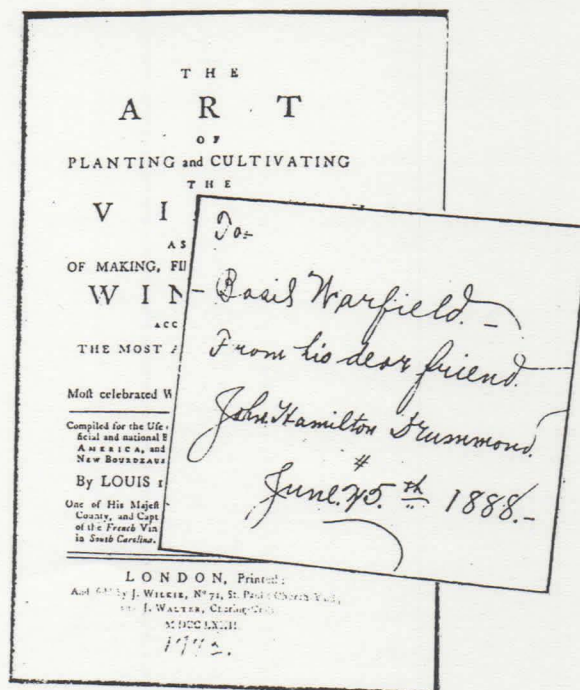 THE
ART
OF
PLANTING and CULTIVATING
THE
VI
AS
OF MAKING, FI
WIN
ACC
THE MOST A
Moſt celebrated W
Compiled for the Uſe
ficial and national B
AMERICA, and
NEW BOURDEAUX
By LOUIS
One of His Majeſt
County, and Capt
of the French Vin
in South Carolina.
LONDON, Printed:
And by J. WILKIE, Nº 71, St. Paul's Church Yard,
J. WALTER, Charing
MDCCLXXII
1772.
To-
Basil Warfield. -
From his dear friend.
John Hamilton Drummond.
June. 25. th 1888.-